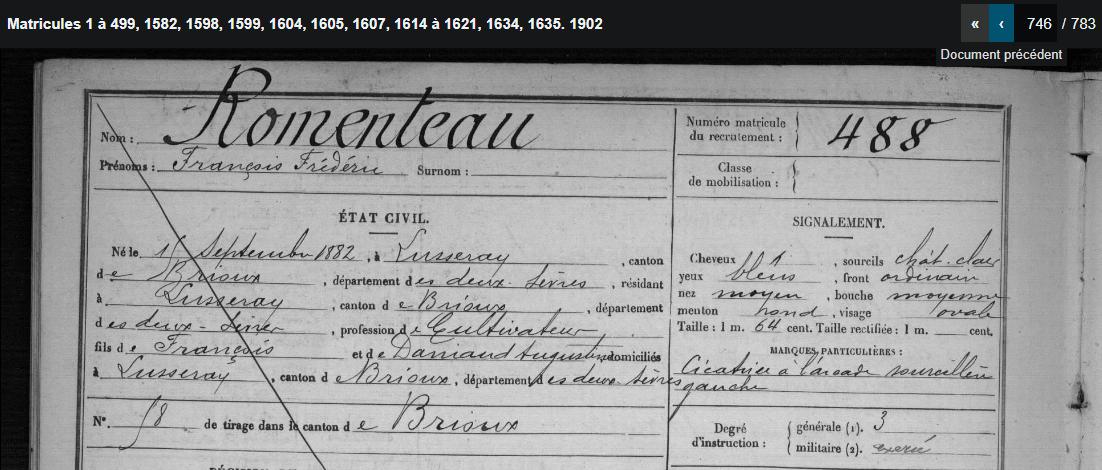 Matricules 1 à 499, 1582, 1598, 1599, 1604, 1605, 1607, 1614 à 1621, 1634, 1635. 1902
« ‹ 746 / 783
Document précédent
Nom : Romenteau
Prénoms : François Frédéric Surnom :
Numéro matricule
du recrutement : 488
Classe
de mobilisation :
ÉTAT CIVIL.
Né le Septembre 1882, à Lusseray, canton
de Brioux, département des deux-Sèvres, résidant
à Lusseray, canton de Brioux, département
des deux-Sèvres, profession de Cultivateur
fils de François et de Daniaud Augustine, domiciliés
à Lusseray, canton de Brioux, département des deux Sèvres
N°. 58 de tirage dans le canton de Brioux
SIGNALEMENT.
Cheveux , sourcils chât. clair
yeux bleus , front ordinaire
nez moyen , bouche moyenne
menton rond , visage ovale
Taille : 1 m. 64 cent. Taille rectifiée : 1 m. cent.
MARQUES PARTICULIÈRES :
Cicatrice à l'arcade sourcilière
gauche
Degré
d'instruction :
générale (1). 3
militaire (2). exercé